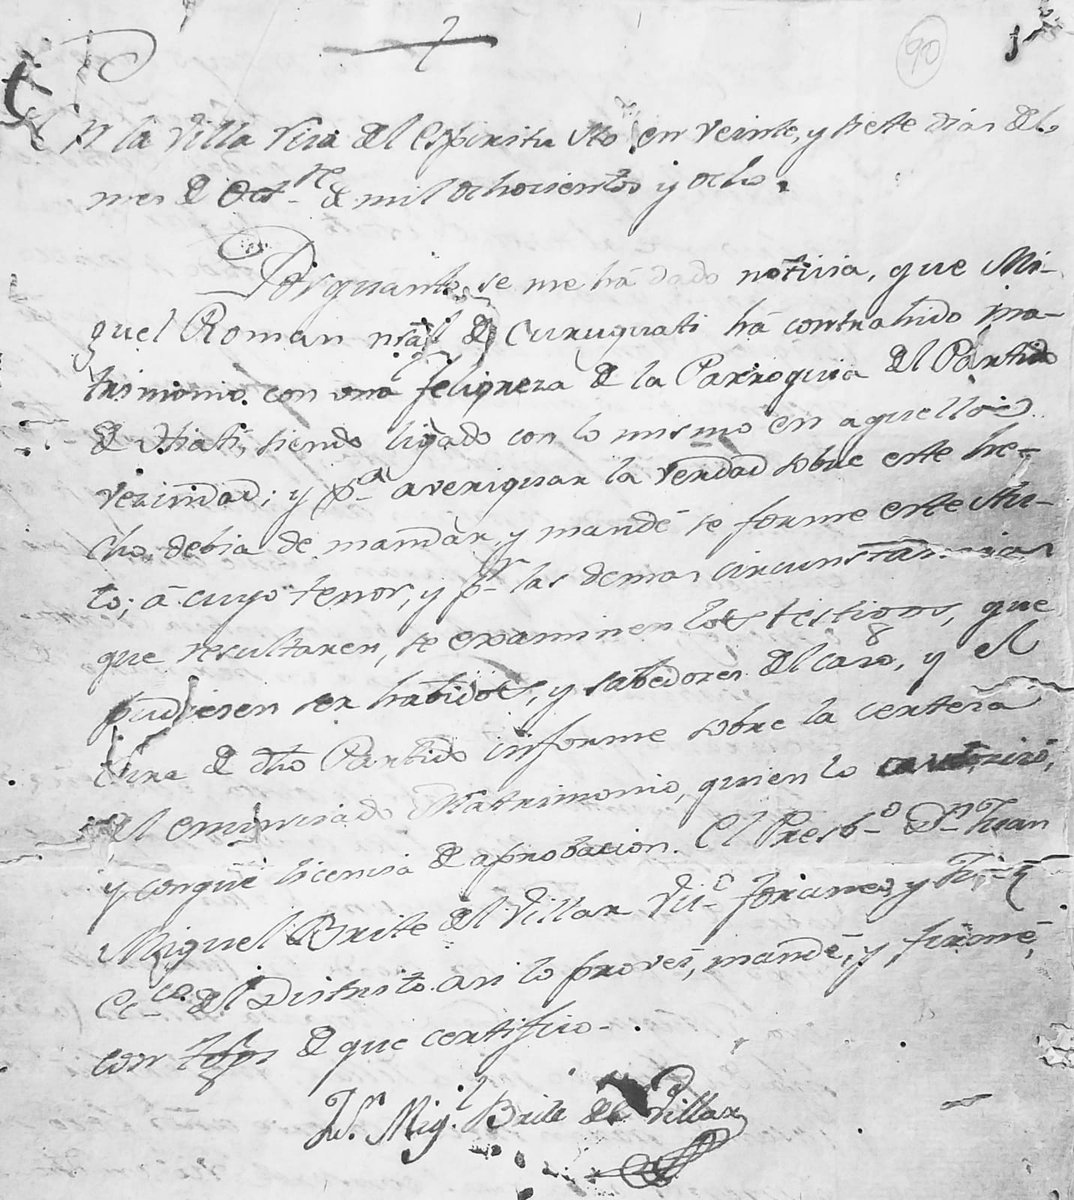 90
En la Villa Rica del Espiritu Sto en veinte, y siete dias del
mes de Oct.re de mil ochocientos y ocho.
Por quanto se me há dado noticia, que Mi-
guel Roman nrãl de Curuguati há contrahido ma-
trimonio con una feligreza de la Parroquia del Partido
de Itiatí, siendo ligado con lo mismo en aquella
vezindad; y p.a averiguar la verdad sobre este he-
cho, debia de mandar, y mandé se forme este Au-
to; á cuyo tenor, y p.r las demas circunstancias
que resultaren, se examinen los testigos, que
pudiesen ser habidos, y sabedores del caso, y el
Cura de dho Partido informe sobre la certeza
del enunciado Matrimonio, quien lo autorizó,
y con què licencia de aprobacion. El Presb.o D.n Juan
Miguel Brite del Villar Vic.o foraneo, y
Ec.co del Distrito asi lo proveí, mandé, y firmé,
con tgos de que certifico.
Ju.n Mig.l Brite del Villar